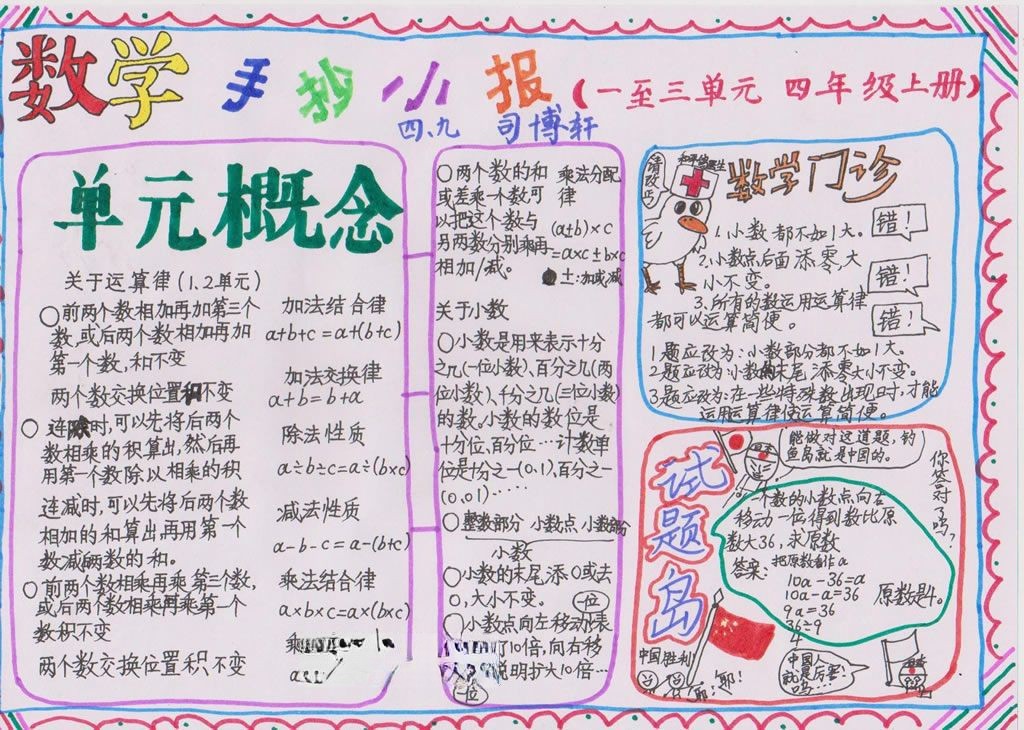 数学手抄小报(一至三单元 四年级上册)
四、九 司博轩
单元概念
关于运算律(1、2单元)
○前两个数相加再加第三个
数,或后两个数相加再加
第一个数,和不变
加法结合律
a+b+c=a+(b+c)
两个数交换位置和不变
加法交换律
a+b=b+a
○连除时,可以先将后两个
数相乘的积算出,然后再
用第一个数除以相乘的积
除法性质
a÷b÷c=a÷(b×c)
连减时,可以先将后两个数
相加的和算出,再用第一个
数减两数的和。
减法性质
a-b-c=a-(b+c)
○前两个数相乘再乘第三个数,
或后两个数相乘再乘第一个
数积不变
乘法结合律
a×b×c=a×(b×c)
两个数交换位置积不变
乘
a
○两个数的和
或差乘一个数可
以把这个数与
另两数分别乘再
相加/减。
乘法分配
律
(a±b)×c
=a×c±b×c
±:加或减
关于小数
○小数是用来表示十分
之几(一位小数)、百分之几(两
位小数)、千分之几(三位小数)
的数,小数的数位是
十分位,百分位…计数单
位是十分之一(0.1),百分之一
(0.01)……
○整数部分 小数点 小数部分
小数
○小数的末尾添0或去
0,大小不变。
一位
○小数点向左移动表
了10倍,向右移
说明扩大10倍…
一位
请改巧
数学门诊
1.小数都不如1大。
错!
2.小数点后面添零,大
小不变。
错!
3.所有的数运用运算律
都可以运算简便。
错!
1题应改为:小数部分都不如1大。
2题应改为:小数的末尾添零大小不变。
3题应改为:在一些特殊数出现时,才能
运用运算律使运算简便。
试题岛
能做对这道题,钓
鱼岛就是中国的。
你答对了吗?
一个数的小数点向右
移动一位得到数比原
数大36,求原数
答案: 把原数看作a
10a-36=a
10a-a=36
9a=36
36÷9
4
原数是4。
中国胜利
耶!耶!
中国人
就是厉害!
呜…